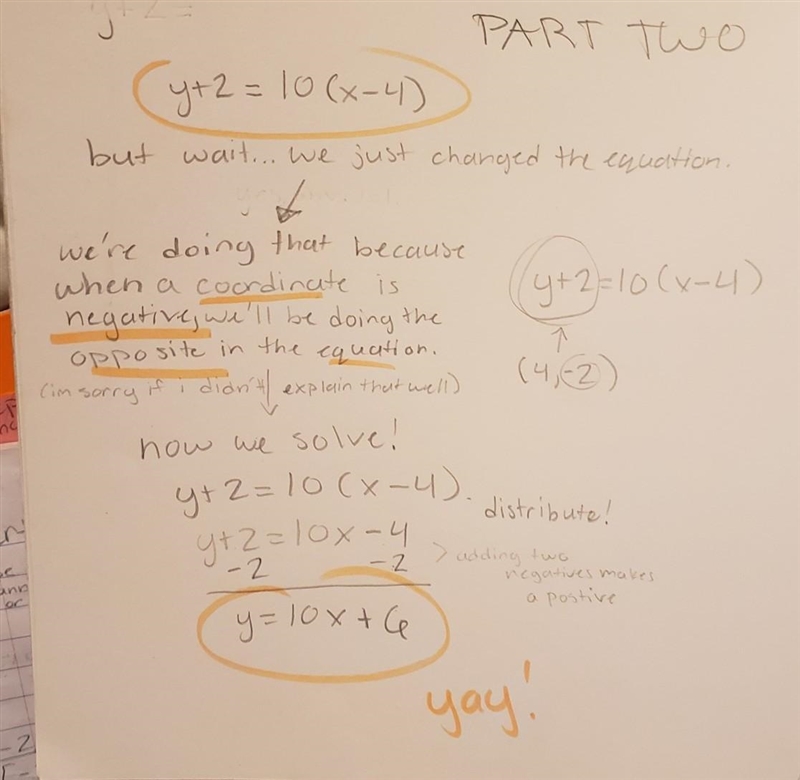 y+2=
PART TWO
y+2 = 10(x-4)
but wait... we just changed the equation.
we're doing that because
when a coordinate is
negative, we'll be doing the
opposite in the equation.
(im sorry if i didn't explain that well)
y+2=10(x-4)
(4,-2)
now we solve!
y+2=10(x-4).
distribute!
y+2=10x-4
-2 -2
>adding two
negatives makes
a postive
y=10x+6
yay!
-2